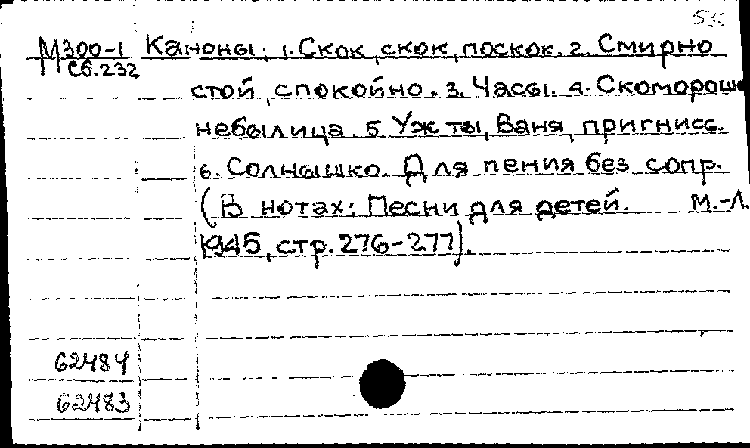 М300-1 Каноны: 1. Скок, скок, поскок. 2. Смирно
Сб.232
стой, спокойно. 3. Часы. 4. Скомороши
небылица. 5. Уж ты, Ваня, пригнись.
6. Солнышко. Для пения без сопр.
(В нотах: Песни для детей. М.-Л.
1945, стр. 276-277).
62484
62483